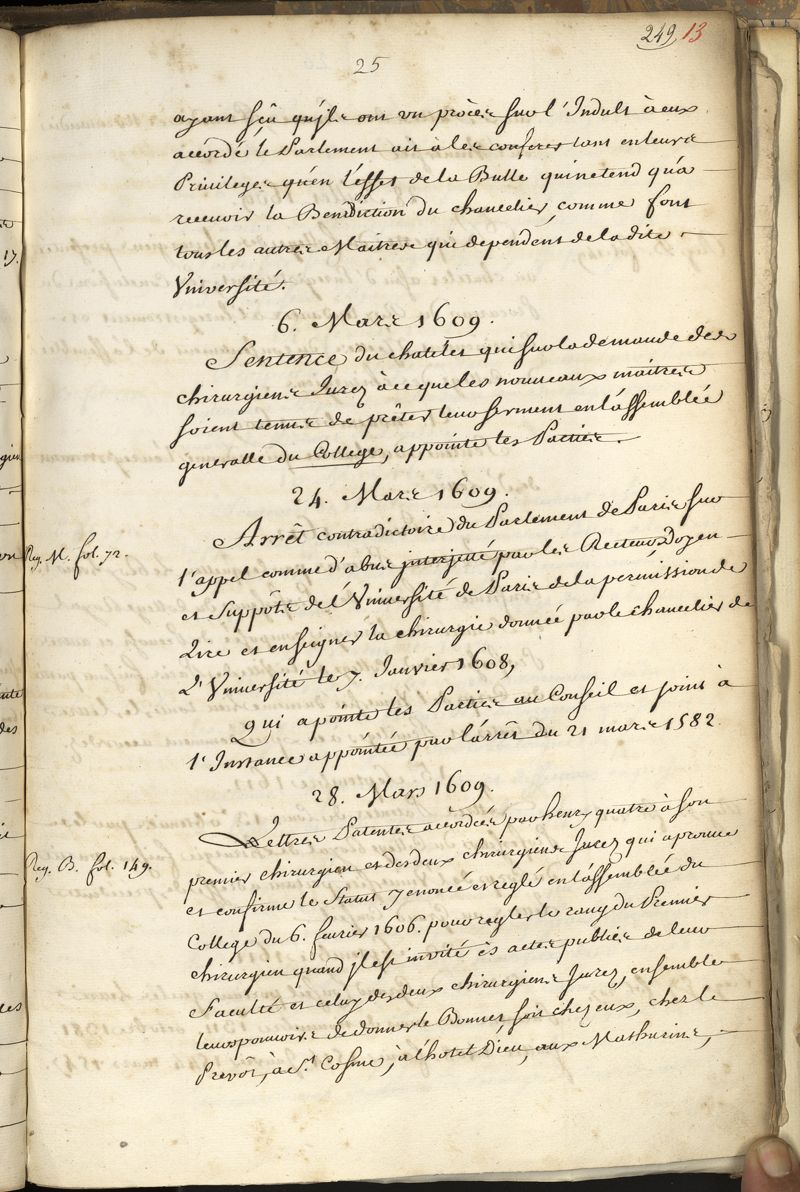 249 13
25
ayant sçû qu'jls ont un procès sur l'Indult à eux
accordé le Parlement ait à les conferer tant en leurs
Privileges qu'en l'effet de la Bulle qui ne tend qu'a
recevoir la Benediction du chancelier, comme font
tous les autres Maitres qui dependent de la dite
Université.
6. Mars 1609.
Sentence du chatelet qui sur la demande des
chirurgiens Jurez à ce que les nouveaux maitres
soient tenus de prêter leur serment en l'assemblée
generalle du College, appointe les Parties.
24. Mars 1609.
Reg. M. fol. 72.
Arrêt contradictoire du Parlement de Paris sur
l'appel comme d'abus interjetté par les Recteur Doyen
et Suppôts de l'Université de Paris de la permission de
Lire et enseigner la chirurgie donnée par le chancelier de
L'Université le 7. Janvier 1608,
Qui apointe les Parties au Conseil et joint à
l'Instance appointée par l'arrêt du 21 mars 1582.
28. Mars 1609.
Reg. B. fol. 149.
Lettres Patentes accordées par henry quatre à son
premier chirurgien et des deux chirurgiens Jurez qui aprouve
et confirme le Statut y enoncé et reglé en l'assemblée du
College du 6. fevrier 1606. pour regler le rang du Premier
chirurgien quand jl est invité ès actes publics de leur
Faculté et celuy des deux chirurgiens Jurez, ensemble
leurs pouvoirs de donner le Bonnet soit chez eux, chez le
Prevôt, à St. Cosme, à l'hotel Dieu, aux Mathurins,